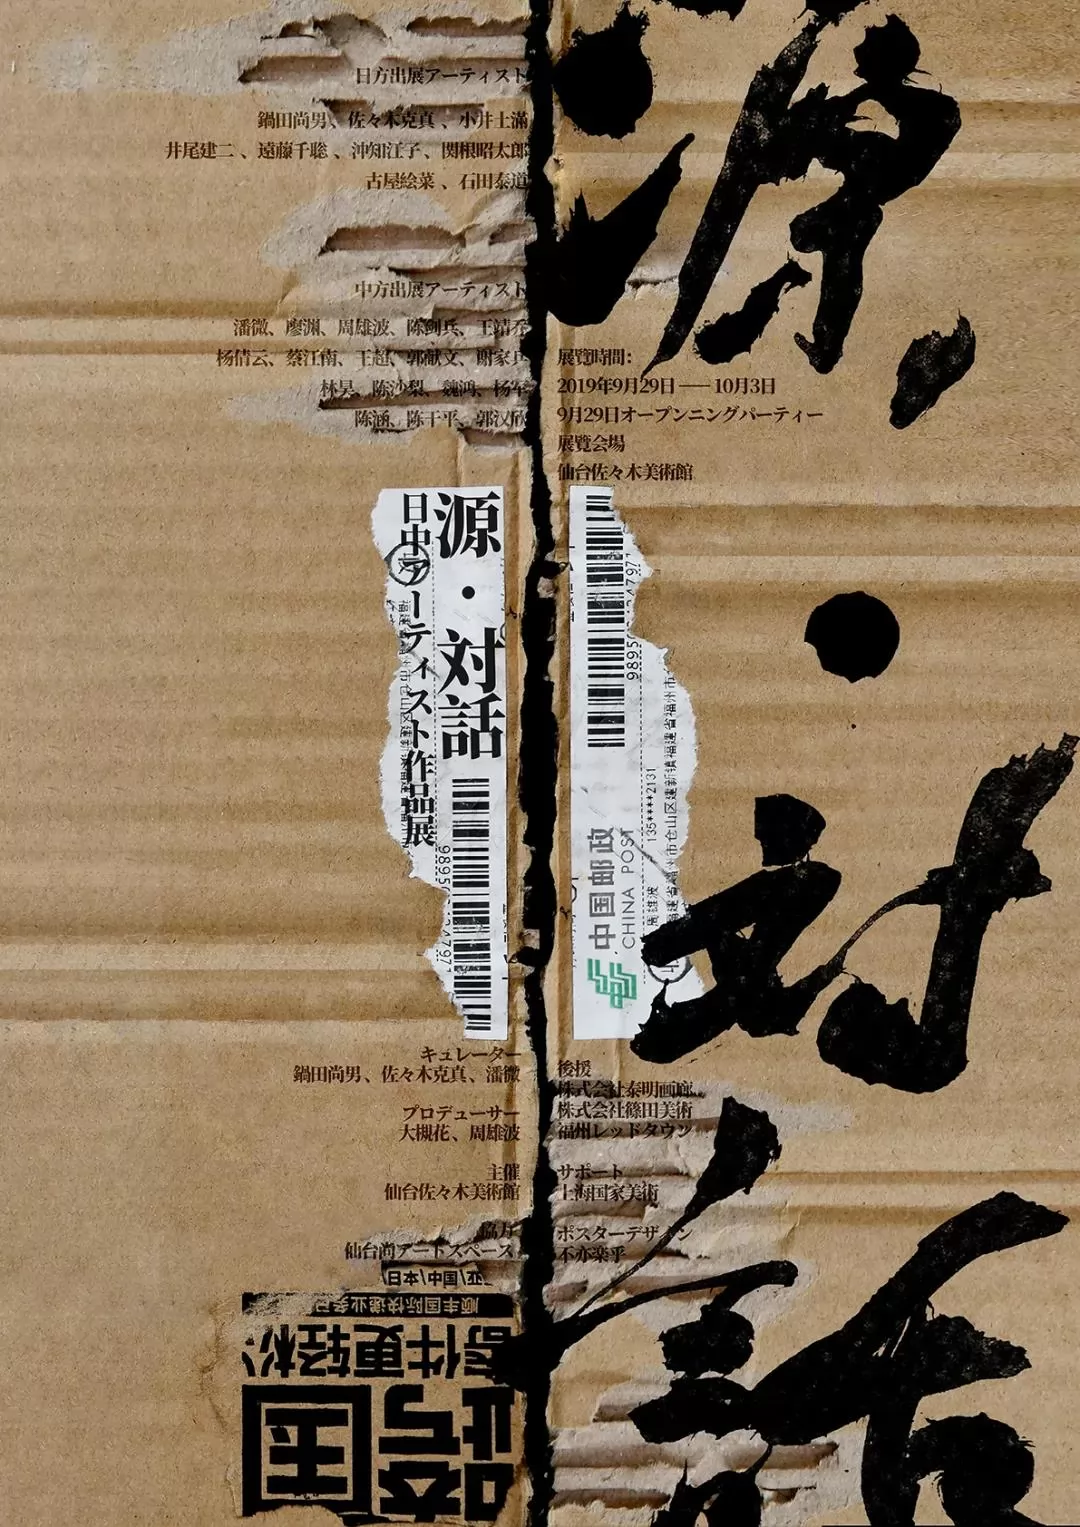 源・対話
日方出展アーティスト
鍋田尚男、佐々木克真、小井土滿
井尾建二、遠藤千聡、沖知江子、関根昭太郎
古屋絵菜、石田泰道
中方出展アーティスト
潘微、廖渊、周雄波、陈剑兵、王靖乔
杨倩云、蔡江南、王超、郭献文、谢家兵
林昊、陈沙梨、魏鸿、杨军
陈涵、陈干平、郭汉欣
展覧時間：
2019年9月29日——10月3日
9月29日オープンニングパーティー
展覧会場
仙台佐々木美術館
源・対話
日中アーティスト作品展
中国邮政
CHINA POST
135****2131
周雄波
福建省福州市仓山区建新镇福建省福州市
キュレーター
鍋田尚男、佐々木克真、潘微
プロデューサー
大槻花、周雄波
主催
仙台佐々木美術館
協力
仙台尚アートスペース
後援
株式会社泰明画廊
株式会社篠田美術
福州レッドタウン
サポート
上海国家美術
ポスターデザイン
不亦楽乎
跨国
寄件更轻松
顺丰国际快递业务
日本/中国/亚